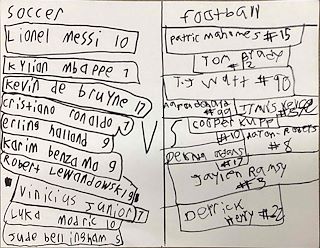 soccer
Lionel messi 10
kylian mbappe 7
kevin de bruyne 17
cristiano ronaldo 7
erling halland 9
karim benzama 9
Robert Lewandowski 9
Vinicius Junior 7
Luka modric 10
Jude bellingham 5
football
patric mahomes #15
Tom Brady
#12
T.J watt #90
#99
cooper kupp
#10
#8
#17
jaylen Ramsy
#5
Derrick
Henry #22